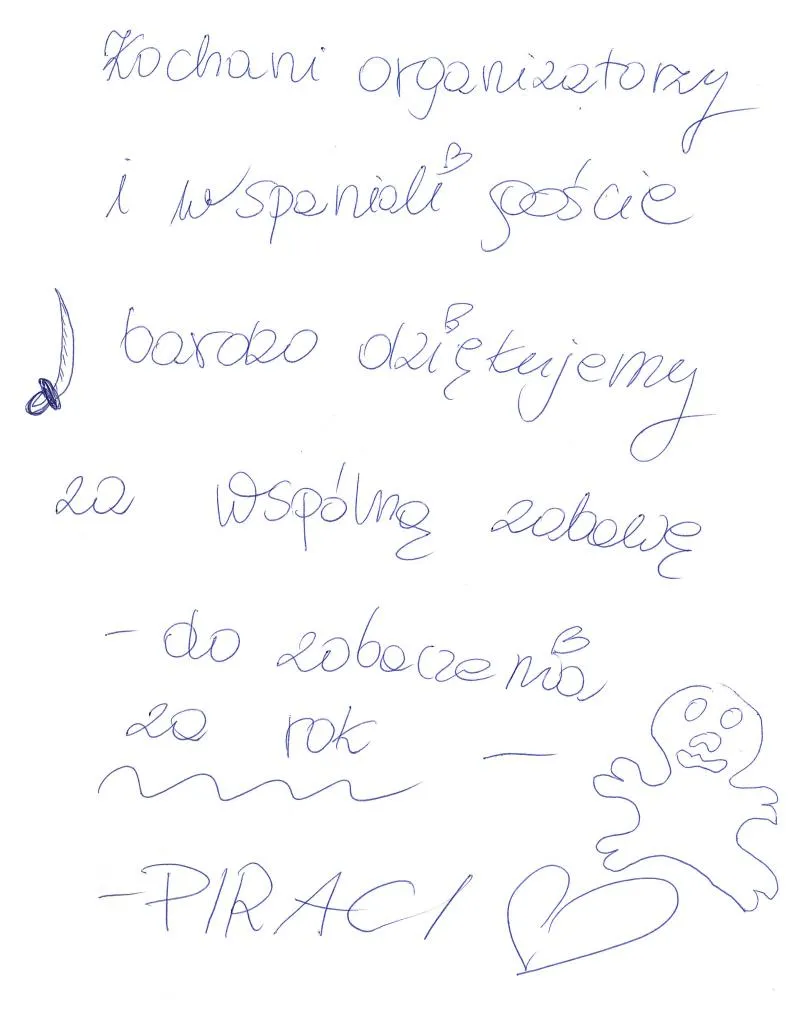 Kochani organizatorzy
i wspaniali goście
bardzo dziękujemy
za wspólną zabawę
- do zobaczenia
za rok -
- PIRACI